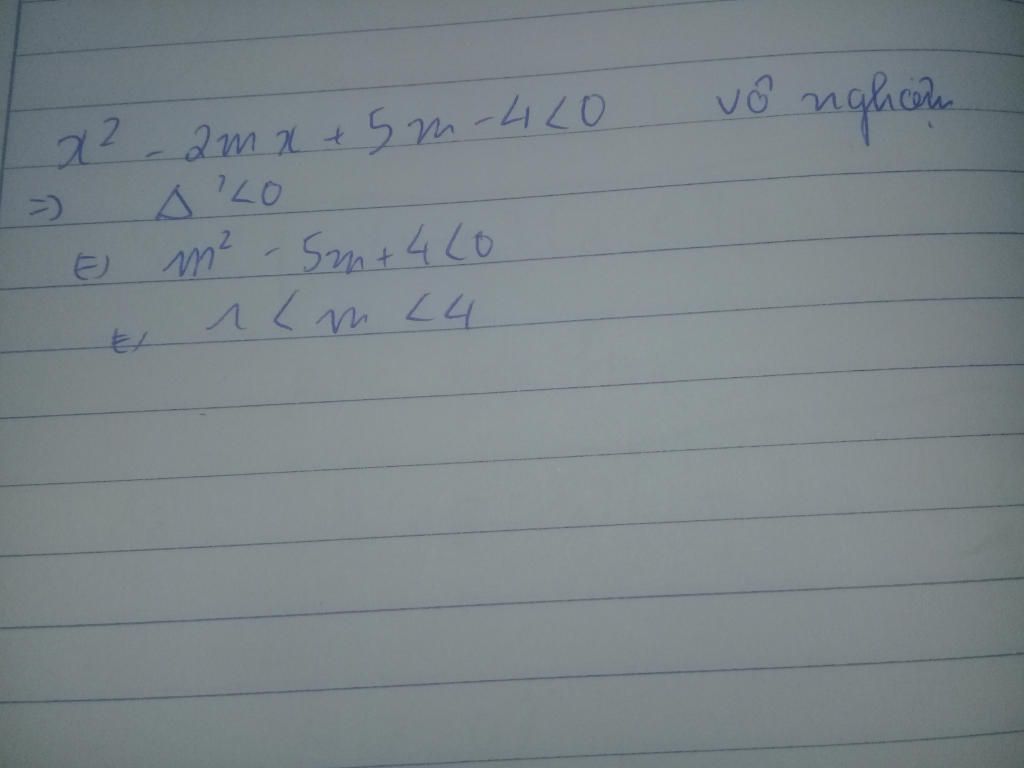 x² - 2mx + 5m - 4 < 0 vô nghiệm
=> Δ' < 0
<=> m² - 5m + 4 < 0
<=> 1 < m < 4